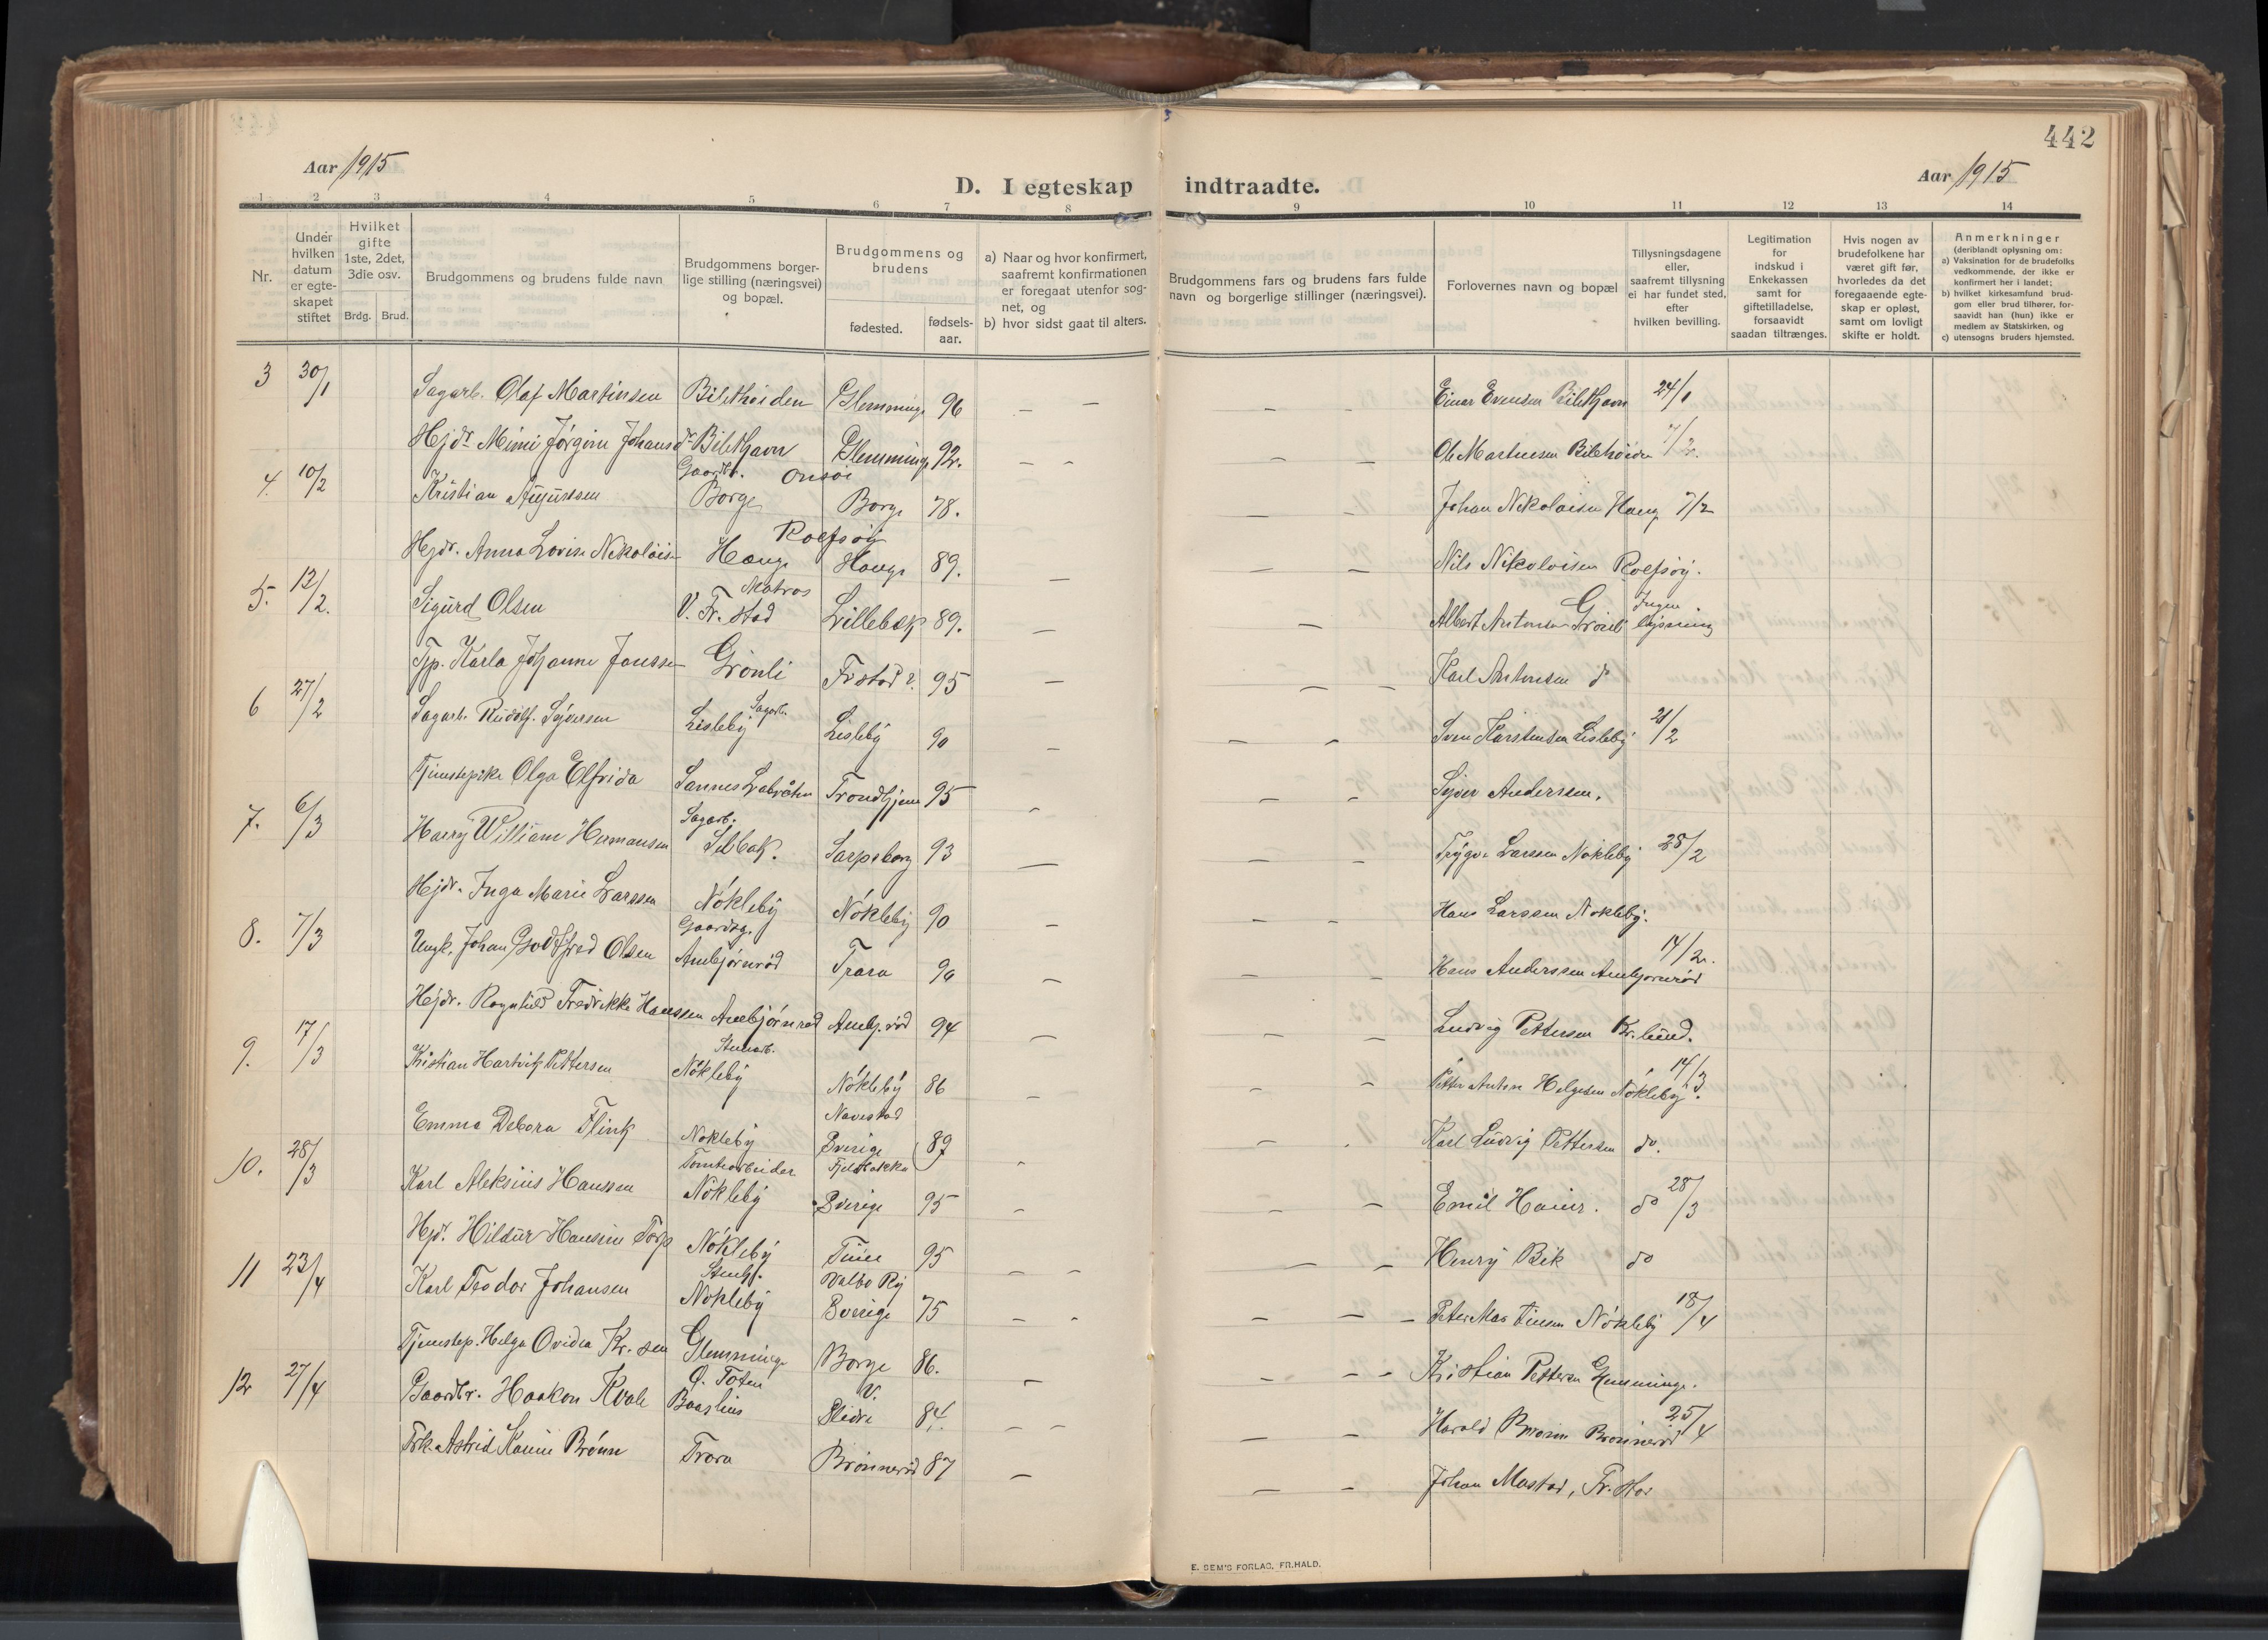 442
Aar 1915
D. I egteskap indtraadte.
Aar 1915
1 2 3 4 5 6 7 8 9 10 11 12 13 14
Nr.
Under hvilken datum er egteskapet stiftet
Hvilket gifte 1ste, 2det, 3die osv.
Brdg. Brud.
Brudgommens og brudens fulde navn
Brudgommens borgerlige stilling (næringsvei) og bopæl.
Brudgommens og brudens
fødested.
fødselsaar.
a) Naar og hvor konfirmert, saafremt konfirmationen er foregaat utenfor sognet, og
b) hvor sidst gaat til alters.
Brudgommens fars og brudens fars fulde navn og borgerlige stillinger (næringsvei).
Forlovernes navn og bopæl
Tillysningsdagene eller, saafremt tillysning ei har fundet sted, efter hvilken bevilling.
Legitimation for indskud i Enkekassen samt for giftetilladelse, forsaavidt saadan tiltrænges.
Hvis nogen av brudefolkene har været gift før, hvorledes da det foregaaende egteskap er opløst, samt om lovligt skifte er holdt.
Anmerkninger
(deriblandt oplysning om:
a) Vaksination for de brudefolks vedkommende, der ikke er konfirmert her i landet;
b) hvilket kirkesamfund brudgom eller brud tilhører, forsaavidt han (hun) ikke er medlem av Statskirken, og
c) utensogns bruders hjemsted.
3 30/1 Sagarb. Olaf Martinsen Glemminge 96 — — — — Einar Evensen 24/1
Hejdr. Mimi Jørgine Johansdr Glemminge 92. — - — — Ole Martinsen 7/2.
4. 10/2 Kristian Augustsen Gaardbr. Onsøi Borge Borge 78. — — Johan Nikolaisen Hauge 7/2
Hejdr. Anna Lovise Nikolaisen Rolfsøy Hauge Hauge 89. — — — Nils Nikolaisen Rolfsøy.
5. 12/2. Sigurd Olsen Matros V. Fr.stad Lillebæk 89. — — Albert Antonsen Grönli Ingen lysning
Tjp. Karla Johanne Jansen Grönli Frstad 95 — — — Karl Antonsen do
6 27/2 Sagarb. Rudolf Sejversen Sagarb. Lisleby Lisleby 90 — — - Sven Karstensen Lisleby 21/2
Tjenestepike Olga Elfrida Sannes Trondhjem 95 - — - Sejver Andersen.
7. 6/3 Harry William Hermansen Sagarb. Selbak. Sarpsborg 93 — — — Trygve Larssen Nökleby 28/2
Hejdr. Inga Marie Larssen Nökleby Nökleby 90 — - - Hans Larssen Nökleby.
8. 7/3 Ungk. Johan Godtfred Olsen Gaardsg. Ambjörnröd Trara 90 — — — Hans Anderssen Ambjornröd 14/2.
Hejdr. Ragnhild Fredrikke Hanssen Ambjörnrød Ambj.röd 94 — - — Ludvig Pettersen Kr.lund.
9. 17/3 Kristian Hartvig Pettersen Stenarb. Nökleby Nökleby 86 - - - Petter Anton Helgesen Nökleby. 14/3
Emma Debora Flink Nökleby Navestad Sverige 89 - - . Karl Ludvig Pettersen do.
10. 28/3 Karl Aleksius Hanssen Tomtearbeider Nökleby Fjeldbakka Sverige 95 - - — Emil do 28/3
Hejdr. Hildur Hansine Torp Nökleby Tune 95 — - Henry Bik do
11 23/4 Karl Teodor Johansen Stenh. Nökleby Valbo Ry Sverige 75 - - — — - Peter Martinsen Nökleby 18/4
Tjenestep. Helga Ovidia Kr.sen Glemminge Borge 86. — - - - Kristian Pettersen Glemminge.
12 27/4 Gaardbr. Haakon Kvale Ø. Toten V. Slidre 84. - - — - Harald Brönnerød 25/4
Frk. Astrid Brönn Trara Brönneröd 87 — — - Johan Mastad, Fr.stad
E. SEM'S FORLAG, FR.HALD.